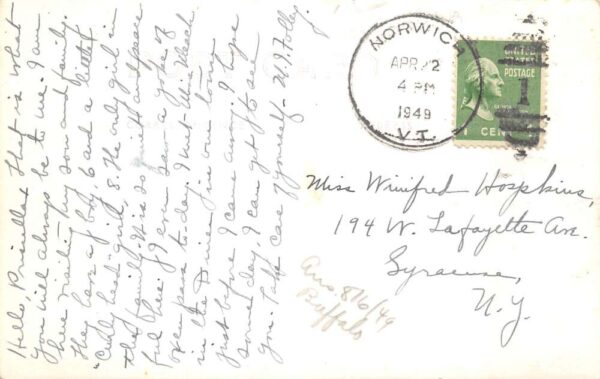 Hello, Priscilla! That is what
you will always be to me. I am
here visiting my son and family.
They have a boy, 6 and a little
"Curly head" girl, 8. The only girl in
the family. It is so quiet and peace
ful here. If I can saw a yoke of
oxen pass to-day. I met Miss
in the Diner in our town
just before I came away. I hope
some day, I can get to see
you. Take care of yourself. M.J. Folly.
NORWICH
APR 22
4 PM
1949
VT.
UNITED STATES
POSTAGE
1
1 CENT
Miss Winifred Hospkins,
194 W. Lafayette Ave.
Syracuse,
N.Y.
Ans. 8/6/49
Buffalo